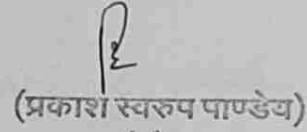 (प्रकाश स्वरुप पाण्डेय)